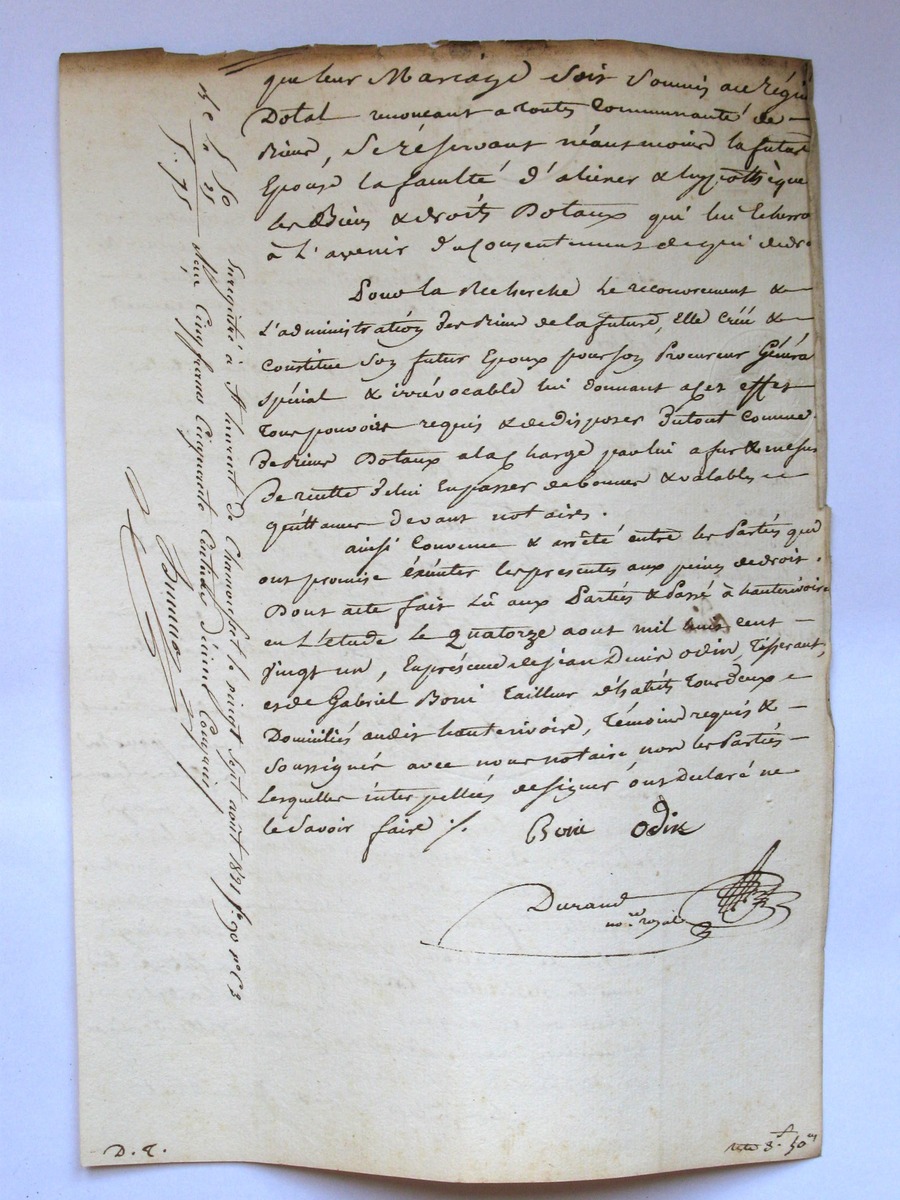 que leur Mariage soit soumis au Régi
Dotal renonceant a toutes Communauté de
Biens, se réservant néantmoins la future
Epouse la faculté d'aliéner & hypothèque
les Biens & droits Dotaux qui lui Echerro
à L'avenir du Consentement de qui de dr
Pour la Recherche le recouvrement &
L'administration des Biens de la future, Elle créé &
Constitue son futur Epoux pour son Procureur Généra
spécial & irrévocable lui donnant a ces effets
tous pouvoirs requis & de disposer du tout comme
de Biens Dotaux a la Charge par lui a fur & mesur
De recette d'elui En passer de bonnes & valables
quittances devant notaires.
ainsi Convenu & arrêté entre les Parties qui
ont promis éxécuter les presentes aux peines de droit.
Dont acte fait Lû aux Parties & Passé à hauterivoire
en L'étude le quatorze aout mil huit cent
vingt un, En présence de jean Denis odin, tisserant,
et de Gabriel Boni tailleur d'habits tous deux
Domiciliés audit hauterivoire, témoins requis &
soussignés avec nous notaire non les Parties
Lesquelles interpellées de signer ont déclaré ne
le savoir faire ./.
Boni odin
Durand
no.re royal
Enregistré à St Laurent de Chamousset le vingt sept août 1821 f.o 90 v.o C 3
Reçu Cinq francs Cinquante Centimes Décime Compris
5 . 50
25
5 . 75
D. T.
3.f 50